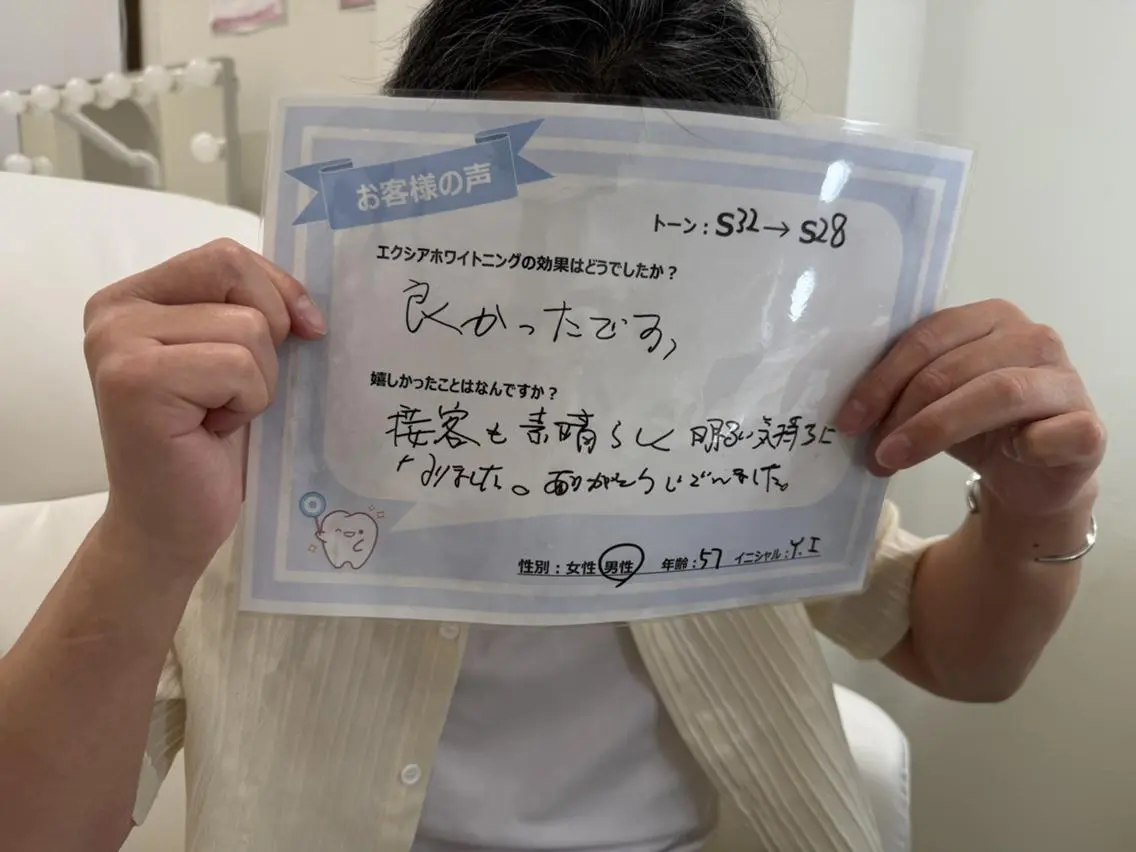 お客様の声
トーン：S32→S28
エクシアホワイトニングの効果はどうでしたか？
良かったです,
嬉しかったことはなんですか？
接客も素晴らしく明るい気持ちに
なりました。ありがとうございました。
性別：女性 男性 年齢：57 イニシャル：Y.I